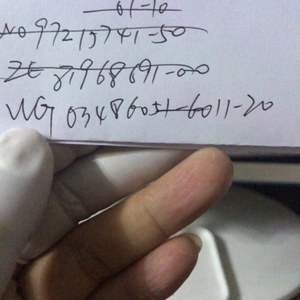 61-10
NO 97215741-50
ZE 87968691-00
WG 03486051-6011-20